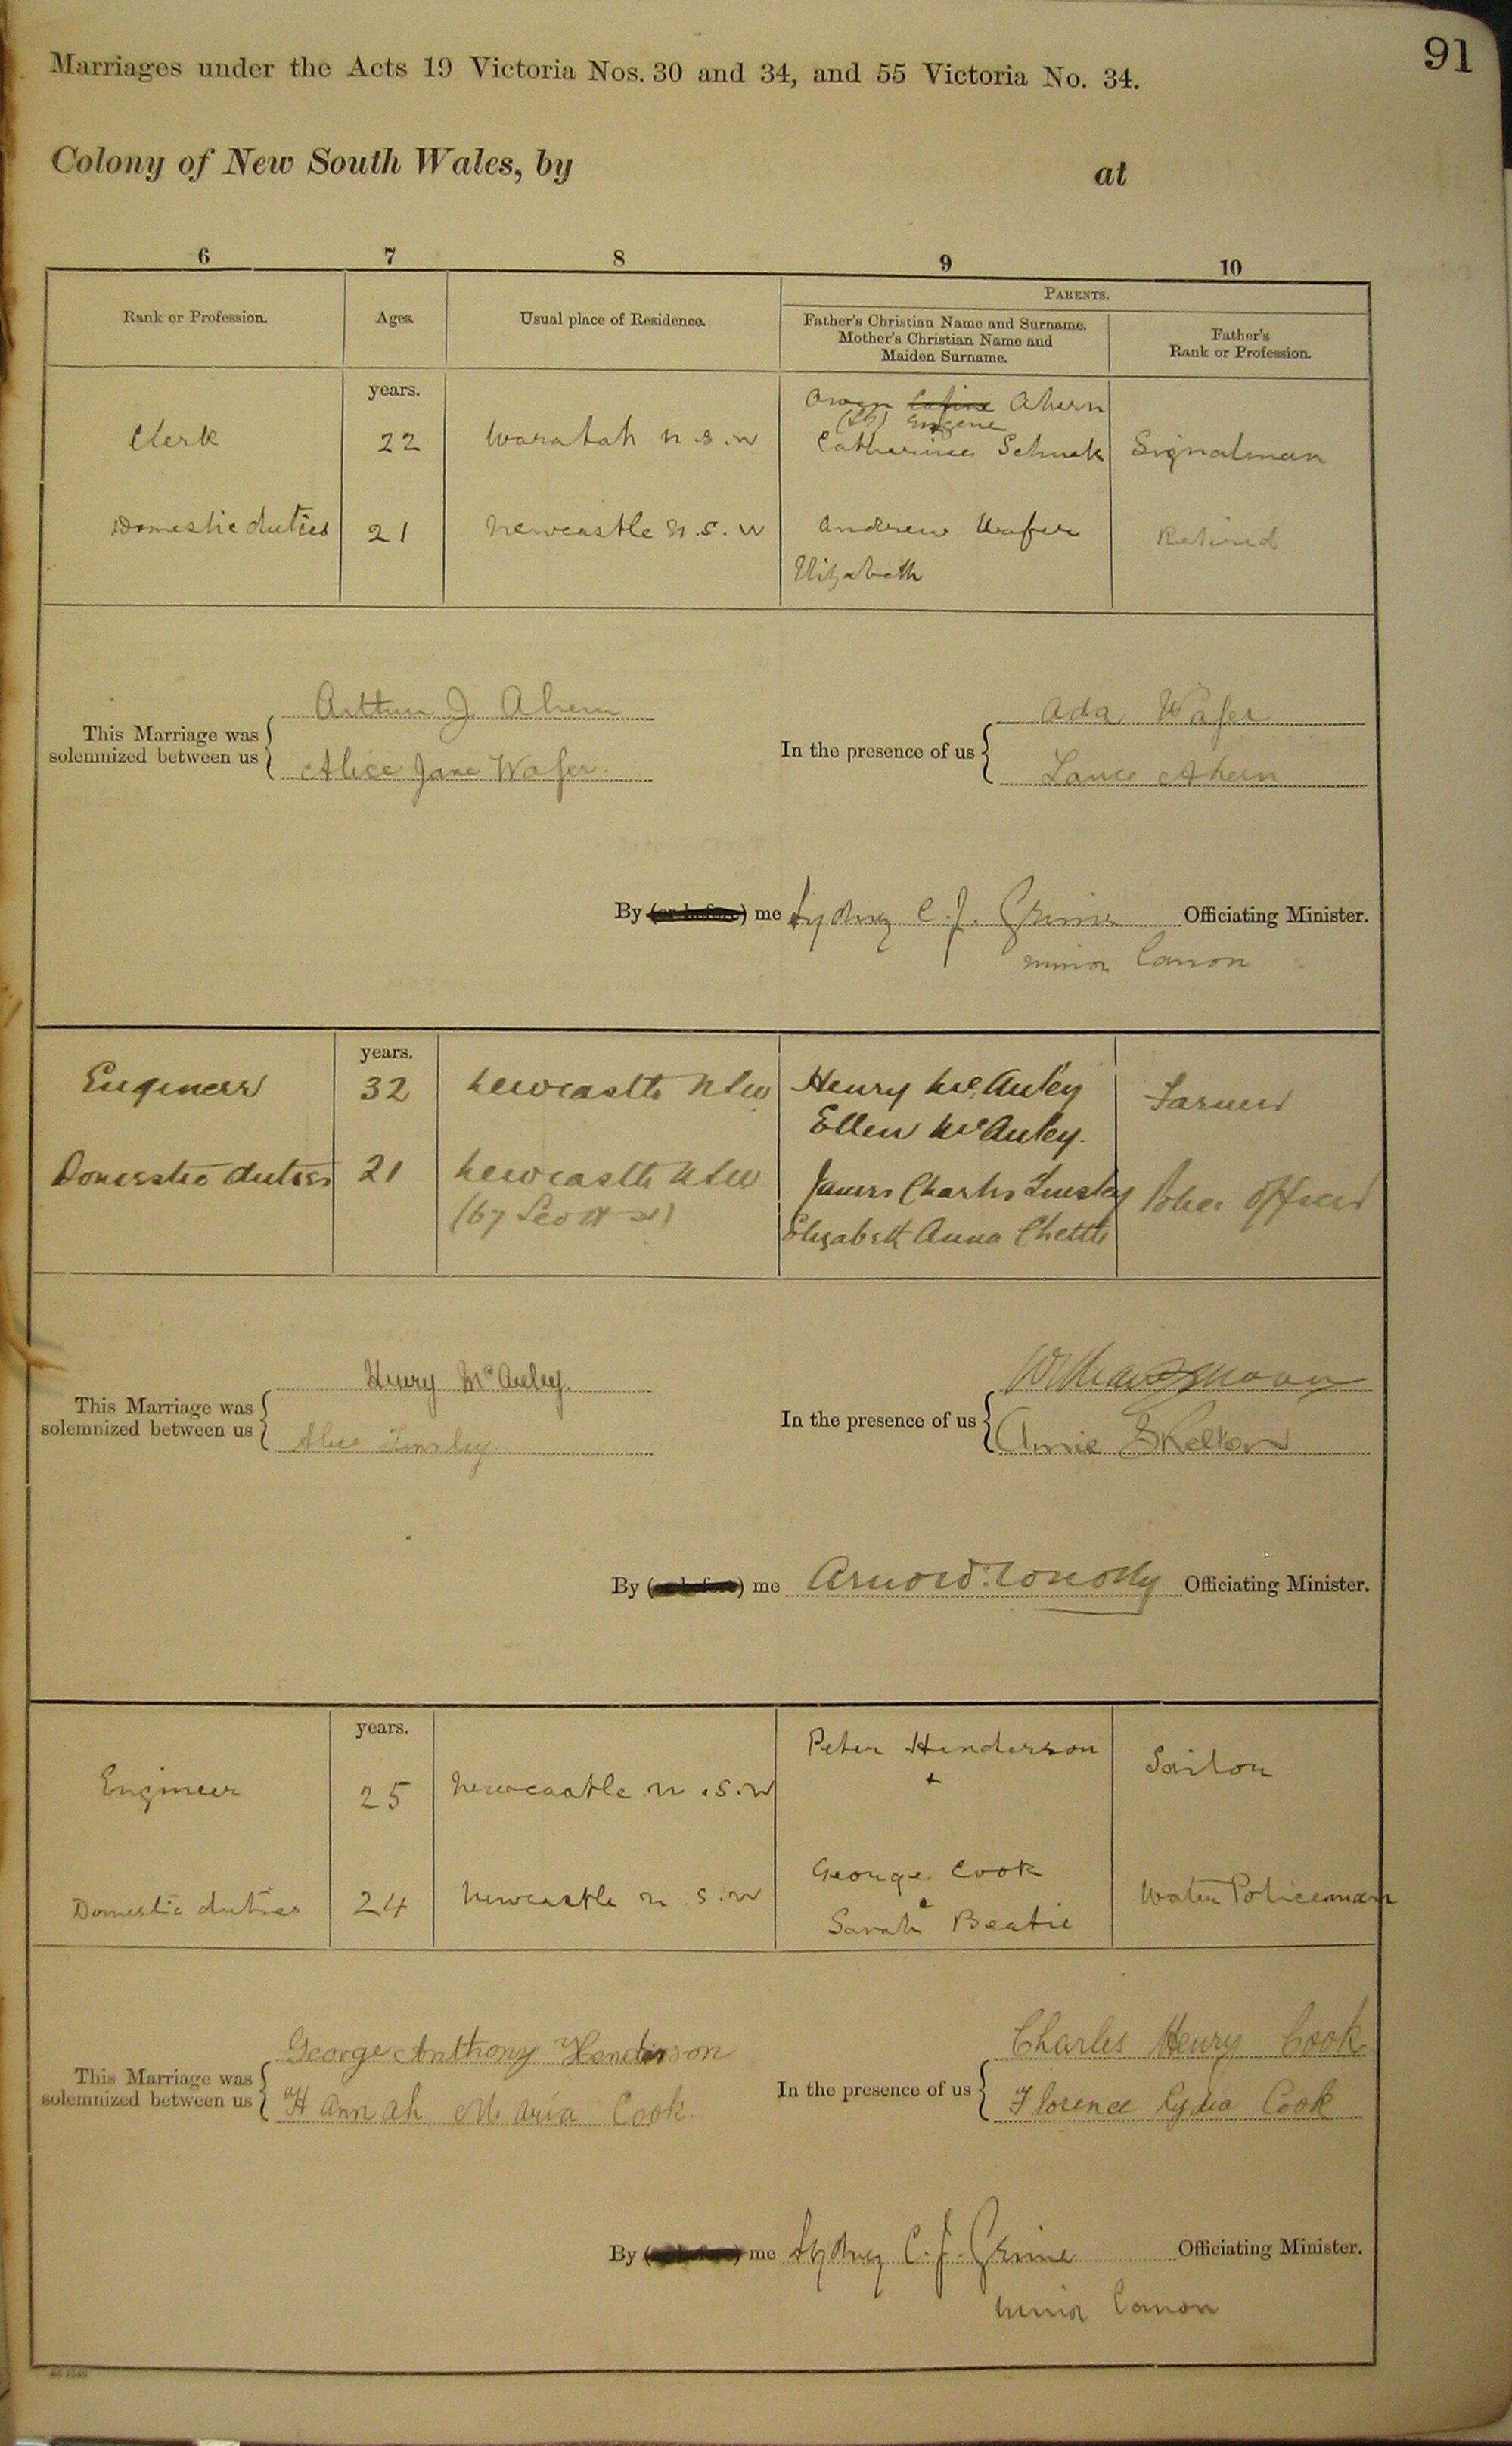 91
Marriages under the Acts 19 Victoria Nos. 30 and 34, and 55 Victoria No. 34.
Colony of New South Wales, by at
6 7 8 9 10
Rank or Profession. Ages. Usual place of Residence. PARENTS.
Father's Christian Name and Surname. Mother's Christian Name and Maiden Surname. Father's Rank or Profession.
years.
Owen Ahern
Eugene
Clerk 22 Waratah N.S.W Catharine Schuck Signalman
Domestic duties 21 Newcastle N.S.W Andrew Wafer Retired
Elizabeth
This Marriage was solemnized between us
Arthur J Ahern
Alice Jane Wafer
In the presence of us
Ada Wafer
Lance Ahern
By (or before) me Sydney C. J. Grime Officiating Minister.
minor Canon
years.
Engineer 32 Newcastle NSW Henry McAuley Farmer
Ellen McAuley.
Domestic duties 21 Newcastle NSW James Charles Tinsley Police Officer
(67 Scott St) Elizabeth Anna Chettle
This Marriage was solemnized between us
Henry McAuley.
Alice Tinsley
In the presence of us
Annie Skelton
By (or before) me Arnold Conolly Officiating Minister.
years.
Peter Henderson Sailor
+
Engineer 25 Newcastle N.S.W
George Cook
Domestic duties 24 Newcastle N.S.W Water Policeman
Sarah Beatie
This Marriage was solemnized between us
George Anthony Henderson
Hannah Maria Cook
In the presence of us
Charles Henry Cook
Florence Lydia Cook
By (or before) me Sydney C. J. Grime Officiating Minister.
minor Canon